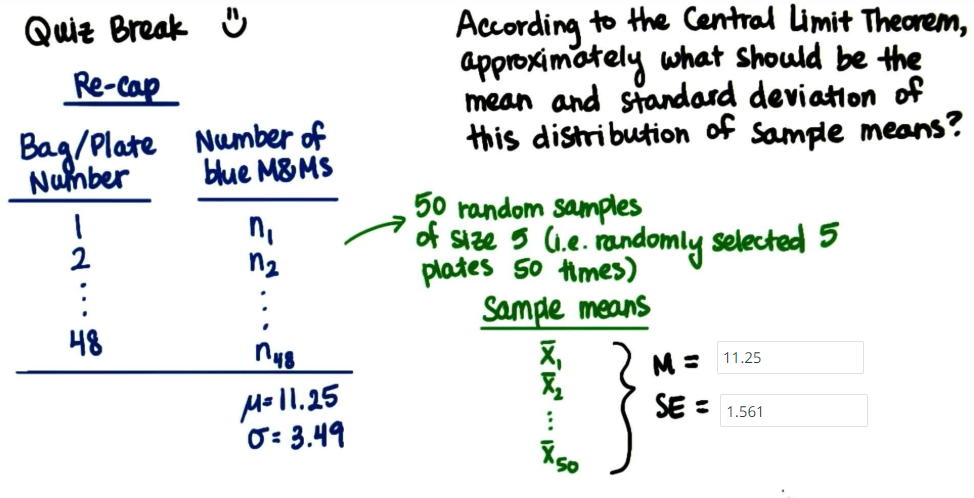 Quiz Break
Re-cap
Bag/Plate Number
Number of blue M&Ms
1 n₁
2 n₂
⋮ ⋮
48 n₄₈
μ = 11.25
σ = 3.49
According to the Central Limit Theorem,
approximately what should be the
mean and standard deviation of
this distribution of sample means?
50 random samples
of size 5 (i.e. randomly selected 5
plates 50 times)
Sample means
x̄₁
x̄₂
⋮
x̄₅₀
M = 11.25
SE = 1.561